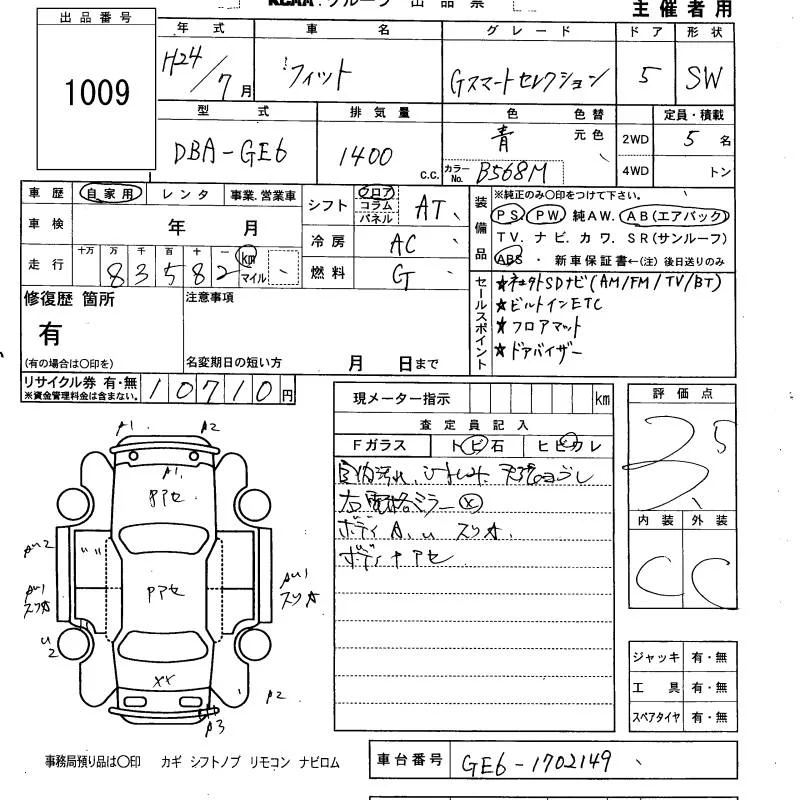 KCAA. グループ 出品票
主催者用
出品番号
1009
年式 車名 グレード ドア 形状
H24/7月 フィット Gスマートセレクション 5 SW
型式 排気量 色 色替 定員・積載
DBA-GE6 1400 c.c. 青 元色 2WD 5名
カラーNo. B568M 4WD トン
車歴 自家用 レンタ 事業.営業車
シフト フロア コラム パネル AT
装備品
※純正のみ〇印をつけて下さい。
PS PW 純AW. AB(エアバック)
TV. ナビ. カワ. SR(サンルーフ)
ABS ・ 新車保証書←(注) 後日送りのみ
車検 年 月
冷房 AC
走行 十万 万 千 百 十 一 km マイル
83582
燃料 G
セールスポイント
★ネオクトSDナビ(AM/FM/TV/BT)
★ビルトインETC
★フロアマット
★ドアバイザー
修復歴 箇所
有
(有の場合は〇印を)
注意事項
名変期日の短い方 月 日まで
リサイクル券 有・無
※資金管理料金は含まない。
10710円
現メーター指示 km
査定員記入
Fガラス トビ石 ヒビワレ
右電格ミラー ⓧ
ボディ A. u スリキ.
ボディ ナアセ
評価点
3.5
内装 外装
C C
A1 A2
A1
Pアセ
AU2
AU1
スリキ
U2
Pアセ
AU1
スリキ
XX
A2
A3
ジャッキ 有・無
工具 有・無
スペアタイヤ 有・無
事務局預り品は〇印 カギ シフトノブ リモコン ナビロム
車台番号 GE6-1702149